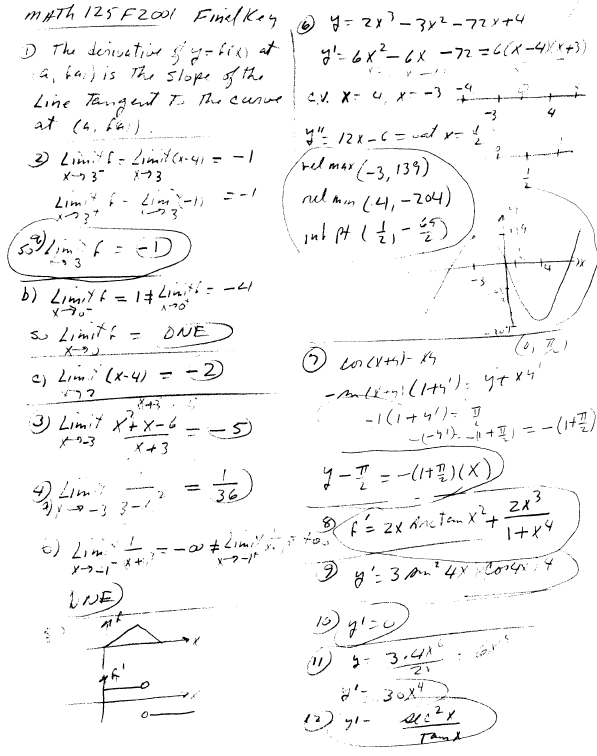 MATH 125 F2001 Final Key
1) The derivative of y=f(x) at
(a, f(a)) is the slope of the
Line Tangent To The curve
at (a, f(a)).
2) Limit f = Limit (x-4) = -1
x→3⁻ x→3
Limit f = Lim (-1) = -1
x→3⁺ x→3
so a) Lim f = -1
x→3
b) Limit f = 1 ≠ Limit f = -4
x→0⁻ x→0⁺
so Limit f = DNE
x→0
c) Limit (x-4) = -2
x→2
3) Limit x²+x-6 / x+3 = -5
x→-3
4) Lim = 1/36
x→-3
Lim 1/x+1 = -∞ ≠ Limit
x→-1⁻ x→-1⁺
DNE
f
x
f'
x
6) y = 2x³ - 3x² - 72x + 4
y' = 6x² - 6x - 72 = 6(x-4)(x+3)
c.v. x = 4, x = -3
-3 4
y'' = 12x - 6 = 0 at x = 1/2
1/2
rel max (-3, 139)
rel min (4, -204)
inf pt (1/2, -65/2)
-3 4 x
7) cos(x+y) = xy (0, π/2)
-sin(x+y)(1+y') = y + xy'
-1(1+y') = π/2
= -(1+π/2)
y - π/2 = -(1+π/2)(x)
8) f' = 2x Arctan x² + 2x³ / 1+x⁴
9) y' = 3 sin² 4x cos 4x · 4
10) y' = 0
11) y = 3·4x⁶ / 2x = 6x⁵
y' = 30x⁴
12) y' = sec²x / Tanx